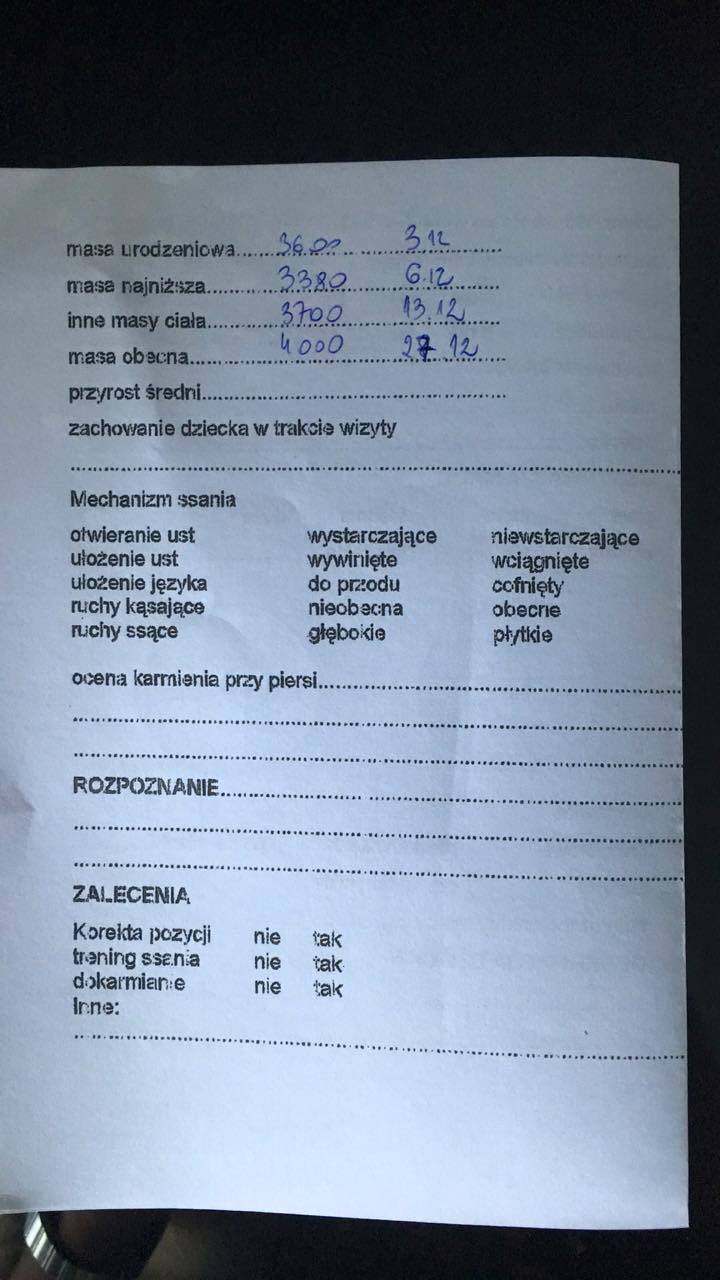 masa urodzeniowa..... 3600 ........ 3.12
masa najniższa........... 3380 ........ 6.12
inne masy ciała.......... 3700 ........ 13.12
masa obecna............. 4000 ........ 27.12
przyrost średni......................................................
zachowanie dziecka w trakcie wizyty
................................................................................
Mechanizm ssania
otwieranie ust wystarczające niewstarczające
ułożenie ust wywinięte wciągnięte
ułożenie języka do przodu cofnięty
ruchy kąsające nieobecna obecne
ruchy ssące głębokie płytkie
ocena karmienia przy piersi................................................
................................................................................
................................................................................
ROZPOZNANIE..............................................................
................................................................................
................................................................................
ZALECENIA
Korekta pozycji nie tak
trening ssania nie tak
dokarmianie nie tak
Inne:
................................................................................